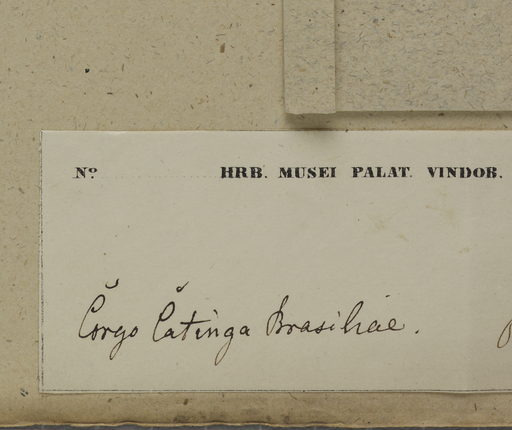 Nº HRB. MUSEI PALAT. VINDOB.
Corgo Catinga Brasiliae.